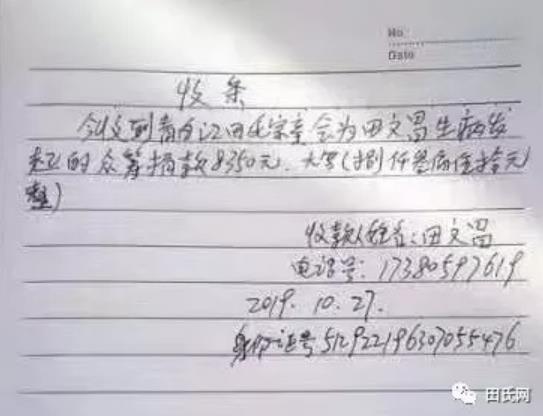 No
Date
收条
今收到青白江田氏宗亲会为田文昌生病发
起的众筹捐款8350元.大写(捌仟叁佰伍拾元
整)
收款人姓名:田文昌
电话号:17380597619
2019.10.27.
身份证号512922196307055476
田氏网